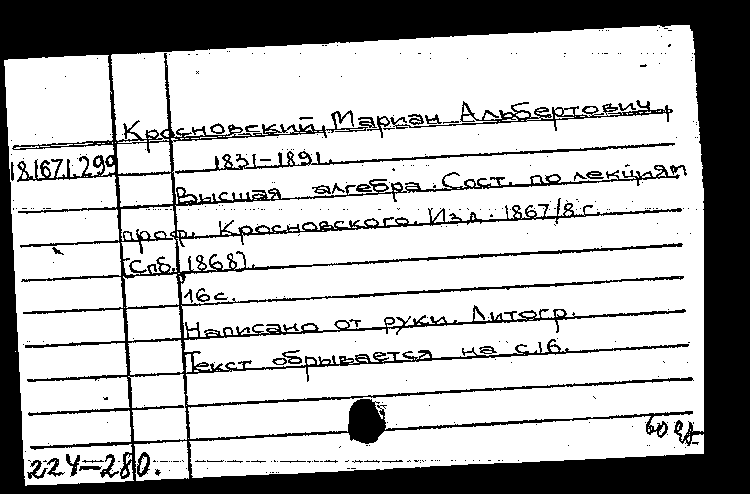 Красновский, Мариан Альбертович,
18.167.1.299 1831-1891.
Высшая алгебра. Сост. по лекциям
проф. Красновского. Изд. 1867/8 г.
[Спб. 1868].
16 с.
Написано от руки. Литогр.
Текст обрывается на с. 16.
60
224-280.